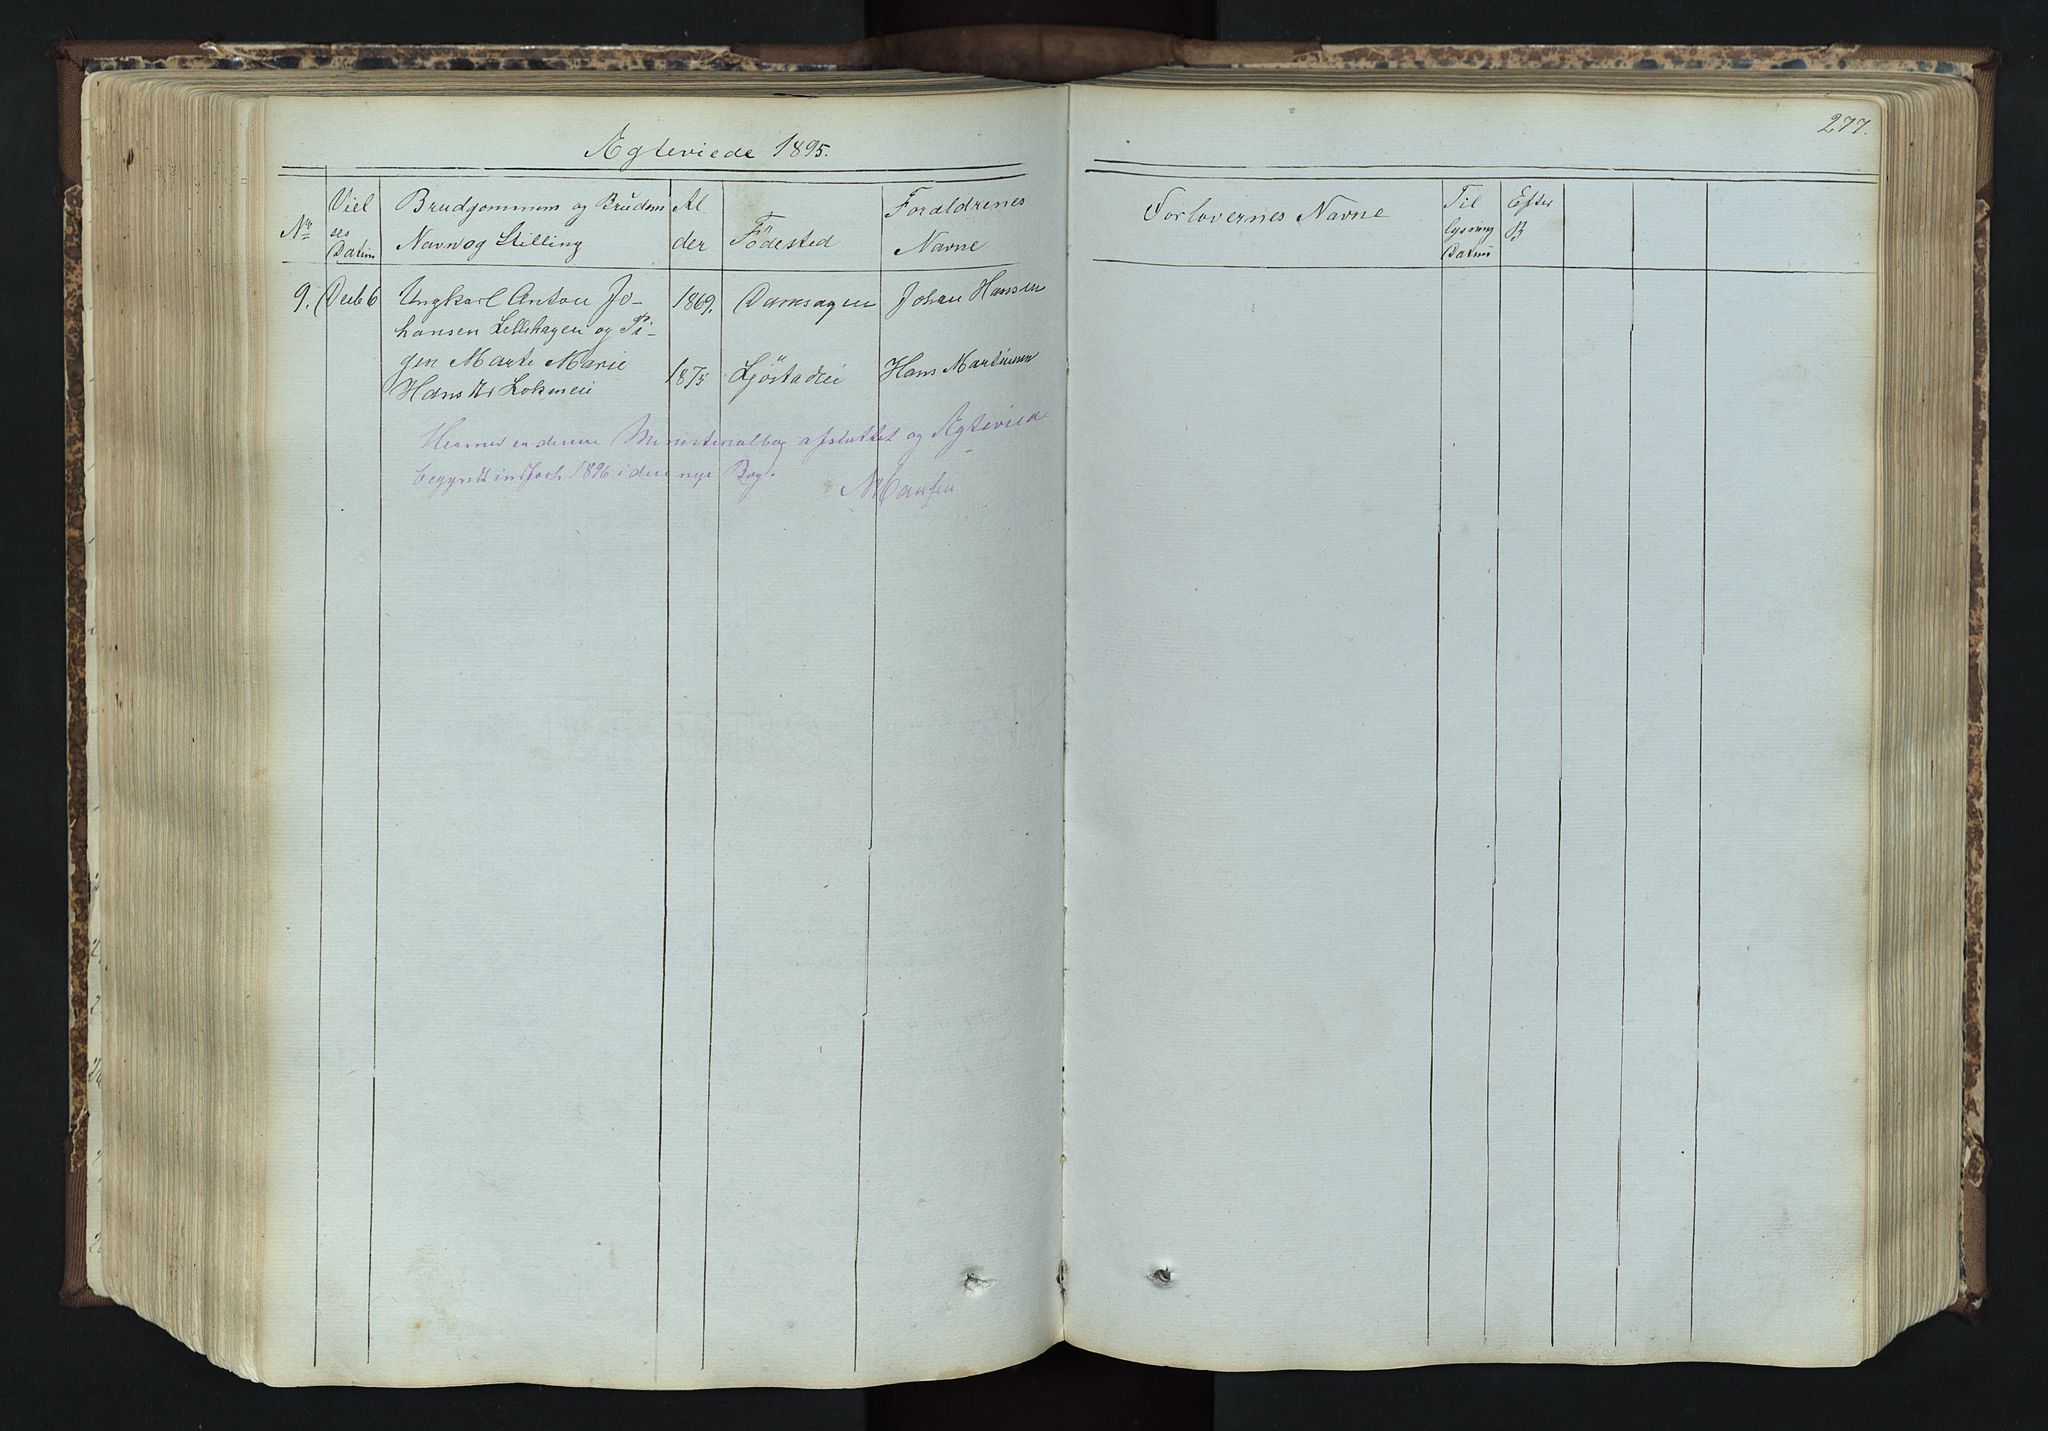 Ægteviede 1895.
277.
No
Viel
ses
Datum
Brudgommens og Brudens
Navn og Stilling
Al
der
Födested
Forældrenes
Navne
Forlovernes Navne
Til
lysning
Datum
Efter
B
9. Decb 6 Ungkarl Anton Jo- 1869. Damsagen Johan Hansen
hansen Lellehagen og Pi-
gen Marte Marie
Hansdtr Lokmeie 1875 Ljöstadei Hans Martinsen
Hermed er denne Ministerialbog afsluttet og Ægtevied
begyndt 1896 i den nye Bog.
Hansen